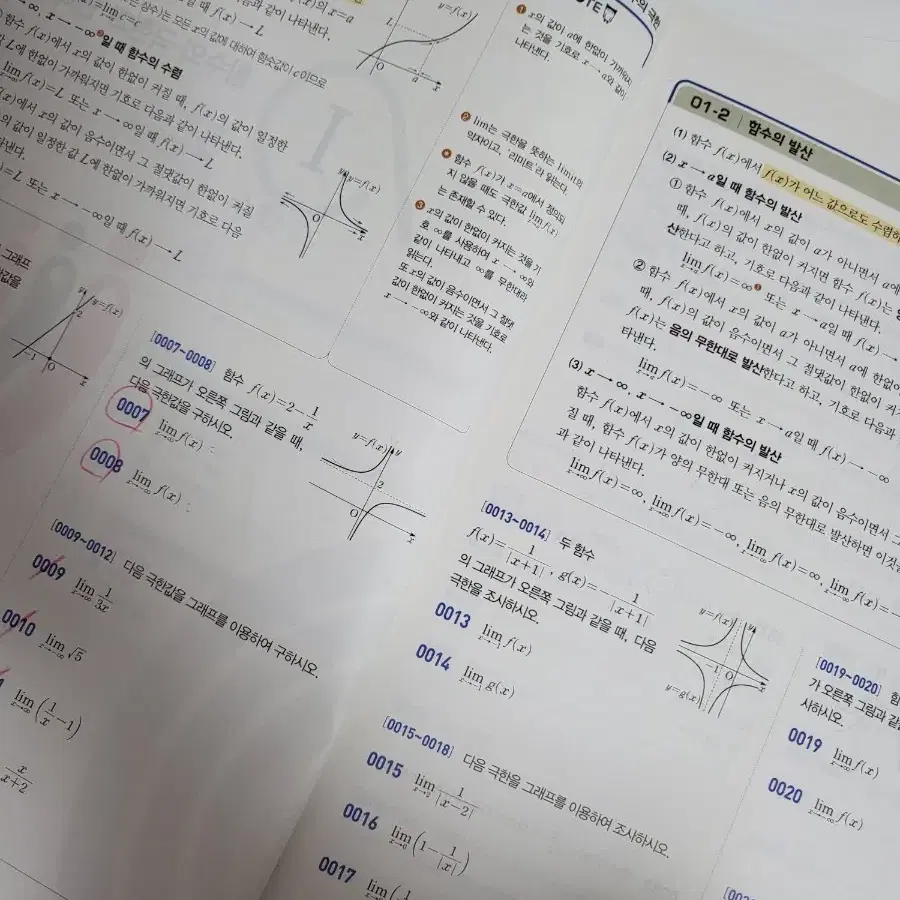 x의 값이 a에 한없이 가까워지
는 것을 기호로 x→a와 같이
나타낸다.
lim는 극한을 뜻하는 limit의
약자이고, '리미트'라 읽는다.
함수 f(x)가 x=a에서 정의되
지 않을 때도 극한값 lim f(x)
는 존재할 수 있다.
x의 값이 한없이 커지는 것을 기
호 ∞를 사용하여 x→∞와
같이 나타내고 ∞를 무한대라
읽는다.
또 x의 값이 음수이면서 그 절댓
값이 한없이 커지는 것을 기호로
x→-∞와 같이 나타낸다.
일 때 함수의 수렴
함수 f(x)에서 x의 값이 한없이 커질 때, f(x)의 값이 일정한
L에 한없이 가까워지면 기호로 다음과 같이 나타낸다.
lim f(x)=L 또는 x→∞일 때 f(x)→L
x→∞
f(x)에서 x의 값이 음수이면서 그 절댓값이 한없이 커질
의 값이 일정한 값 L에 한없이 가까워지면 기호로 다음
=L 또는 x→-∞일 때 f(x)→L
y=f(x)
[0007~0008] 함수 f(x)=2-1/x
의 그래프가 오른쪽 그림과 같을 때,
다음 극한값을 구하시오.
0007 lim x→∞ f(x)
0008 lim x→-∞ f(x)
y=f(x)
y
2
O
x
[0009~0012] 다음 극한값을 그래프를 이용하여 구하시오.
0009 lim x→∞ 1/3x
0010 lim x→-∞ √5
lim x→∞ (1/x-1)
x/x+2
01-2 함수의 발산
(1) 함수 f(x)에서 f(x)가 어느 값으로도 수렴하
(2) x→a일 때 함수의 발산
① 함수 f(x)에서 x의 값이 a가 아니면서 a에
때, f(x)의 값이 한없이 커지면 함수 f(x)는
산한다고 하고, 기호로 다음과 같이 나타낸다.
lim x→a f(x)=∞ 또는 x→a일 때 f(x)→
② 함수 f(x)에서 x의 값이 a가 아니면서 a에 한없이
때, f(x)의 값이 음수이면서 그 절댓값이 한없이 커
f(x)는 음의 무한대로 발산한다고 하고, 기호로 다음과
타낸다.
lim x→a f(x)=-∞ 또는 x→a일 때 f(x)→-∞
(3) x→∞, x→-∞일 때 함수의 발산
함수 f(x)에서 x의 값이 한없이 커지거나 x의 값이 음수이면서 그
질 때, 함수 f(x)가 양의 무한대 또는 음의 무한대로 발산하면 이것을
과 같이 나타낸다.
lim x→∞ f(x)=∞, lim x→∞ f(x)=-∞, lim x→-∞ f(x)=∞, lim x→-∞ f(x)=-
[0013~0014] 두 함수
f(x)=1/|x+1|, g(x)=-1/|x+1|
의 그래프가 오른쪽 그림과 같을 때, 다음
극한을 조사하시오.
0013 lim x→-1 f(x)
0014 lim x→-1 g(x)
y=f(x)
y
-1
O
x
y=g(x)
[0015~0018] 다음 극한을 그래프를 이용하여 조사하시오.
0015 lim x→2 1/|x-2|
0016 lim x→0 (1-1/|x|)
0017 lim
[0019~0020] 함
가 오른쪽 그림과 같을
사하시오.
0019 lim x→∞ f(x)
0020 lim x→-∞ f(x)